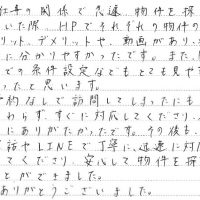 仕事の関係で急遽、物件を探
いた際、HPでそれぞれの物件の
リット、デメリットや、動画があり、
に分かりやすかったです。また、
での条件設定などもとても見や
ったと思います。
約なしで訪問してしまったにも
わらず、すぐに対応してくださり、
にありがたかったです。その後も、
話やLINEで丁寧に、迅速に対応
てくださり、安心して物件を探
とができました。
ありがとうございました。